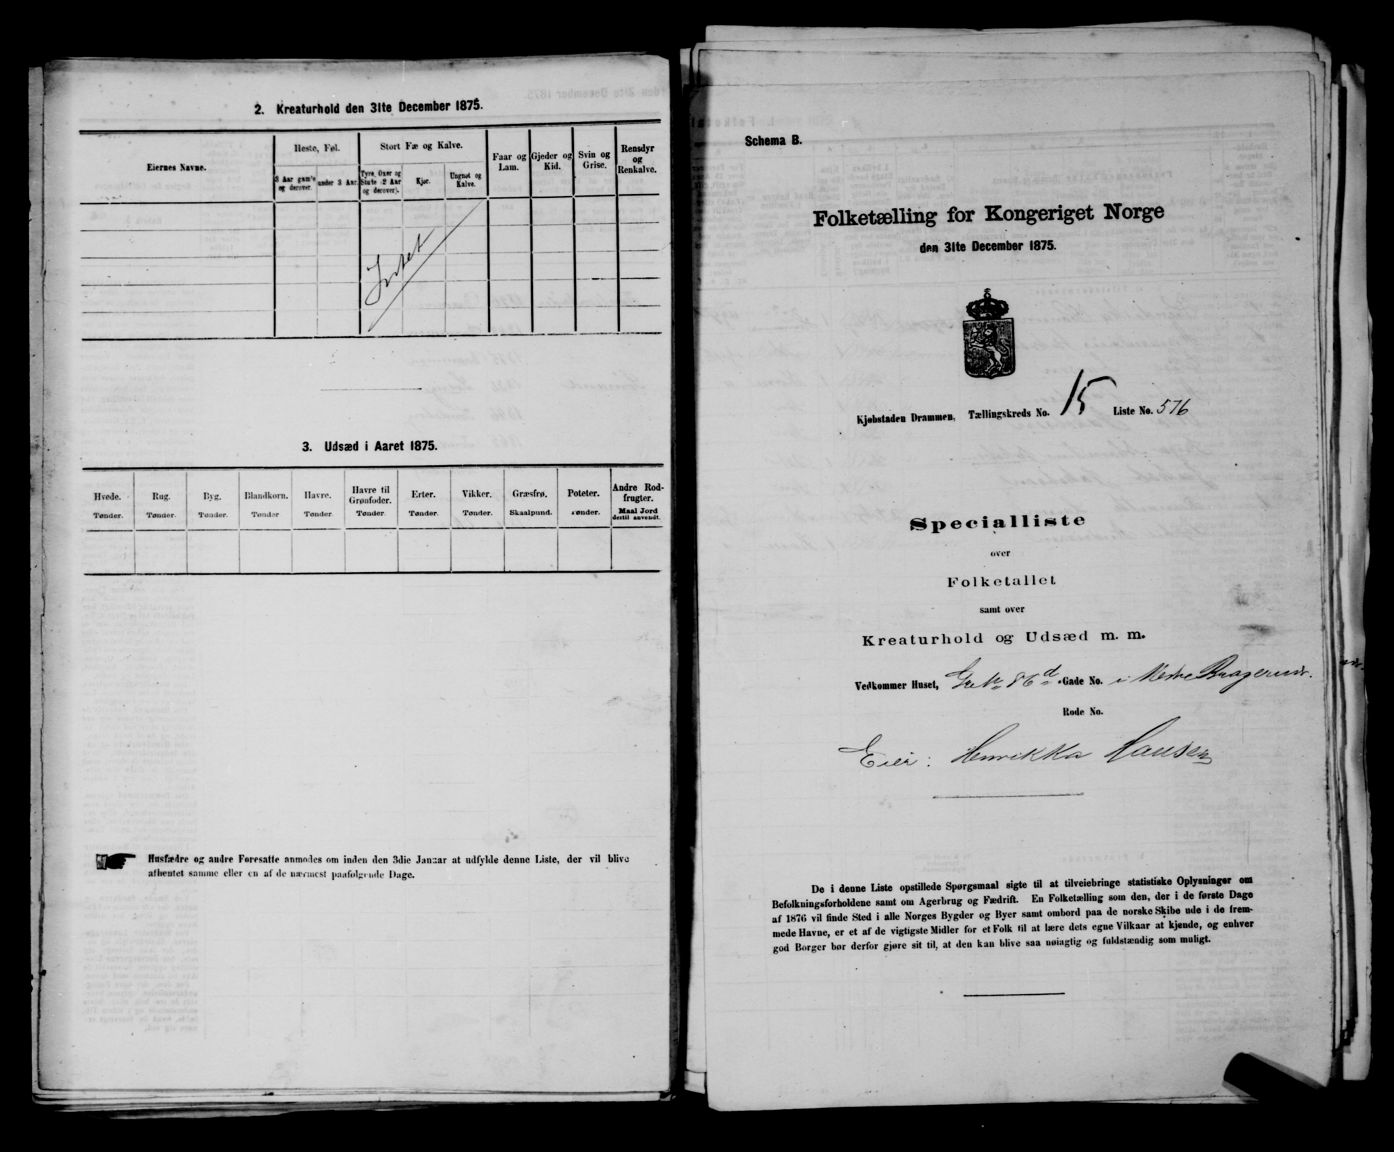 2. Kreaturhold den 31te December 1875.
Eiernes Navne.
Heste, Føl.
Stort Fæ og Kalve.
Faar og Lam.
Gjeder og Kid.
Svin og Grise.
Rensdyr og Renkalve.
3 Aar gamle og derover.
under 3 Aar.
Tyre, Oxer og Stute (2 Aar og derover).
Kjør.
Ungnøt og Kalve.
Intet
3. Udsæd i Aaret 1875.
Hvede. Rug. Byg. Blandkorn. Havre. Havre til Grønfoder. Erter. Vikker. Græsfrø. Poteter. Andre Rodfrugter.
Tønder. Tønder. Tønder. Tønder Tønder. Tønder. Tønder. Tønder. Skaalpund. Tønder. Maal Jord dertil anvendt.
Husfædre og andre Foresatte anmodes om inden den 3die Januar at udfylde denne Liste, der vil blive
afhentet samme eller en af de nærmest paafølgende Dage.
Schema B.
Folketælling for Kongeriget Norge
den 31te December 1875.
Kjøbstaden Drammen, Tællingskreds No. 15 Liste No. 576
Specialliste
over
Folketallet
samt over
Kreaturhold og Udsæd m. m.
Vedkommer Huset, 86d Gade No. i Nedre Bragernes.
Rode No.
Eier: Henrikka Hansen
De i denne Liste opstillede Spørgsmaal sigte til at tilveiebringe statistiske Oplysninger om
Befolkningsforholdene samt om Agerbrug og Fædrift. En Folketælling som den, der i de første Dage
af 1876 vil finde Sted i alle Norges Bygder og Byer samt ombord paa de norske Skibe ude i de frem-
mede Havne, er et af de vigtigste Midler for et Folk til at lære dets egne Vilkaar at kjende, og enhver
god Borger bør derfor gjøre sit til, at den kan blive saa nøiagtig og fuldstændig som muligt.